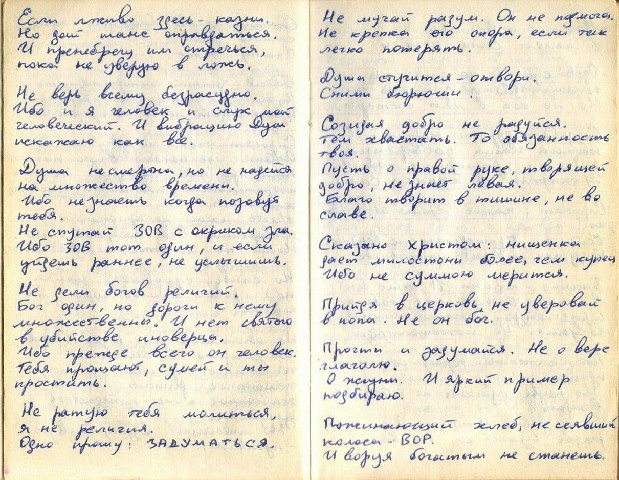 Если лживо здесь - казни.
Но дай шанс оправдаться.
И пренебречу им отречься,
пока не уверую в ложь.
Не верь всему безрассудно.
Ибо и я человек и слух мой
человеческий. И вибрацию Души
искажаю как все.
Душа несмертна, но не надейся
на множество времени.
Ибо не знаешь когда позовут
тебя.
Не спутай ЗОВ с окриком зла.
Ибо ЗОВ тот один, и если
уйдешь раннее, не услышишь.
Не дели богов религий.
Бог один, но дороги к нему
множественны. И нет святого
в убийстве иноверца.
Ибо прежде всего он человек.
Тебя прощают, сумей и ты
простить.
Не ратую тебя молиться,
я не религия.
Одно прошу: ЗАДУМАТЬСЯ.
Не мучай разум. Он не помога.
Не крепка его опора, если так
легко потерять.
Душа стучится - отвори.
Сними бюрючин.
Созидая добро не радуйся.
Тем хвастать. То обязанность
твоя.
Пусть о правой руке, творящей
добро, не знает левая.
Благо творит в тишине, не во
славе.
Сказано Христом: нищенка
дает милостони более, чем купец
Ибо не суммою мерится.
Придя в церковь, не уверовай
в попа. Не он бог.
Прочти и задумайся. Не о вере
глаголю.
О жизни. И яркий пример
подбираю.
Пожинающий хлеб, не сеявший
колоса - ВОР.
И воруя богатым не станешь.